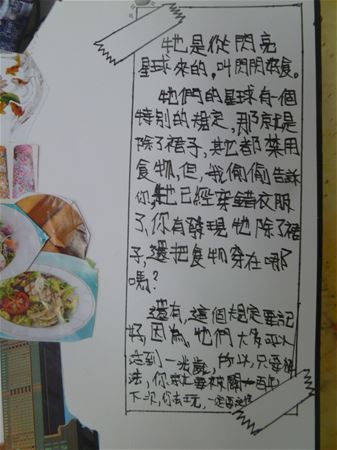 牠是從閃亮
星球來的,叫閃閃
牠們的星球有一個
特別的規定,那就是
除了裙子,其它都禁用
食物,但,我偷偷告訴
你,牠已經穿錯衣服
了,你有發現牠除了裙
子,還把食物穿在哪
嗎?
還有,這個規定要記
好,因為,牠們大多可以
活到一光歲,所以,只要
法,你就要被關一百年
下次,你去玩,一定要